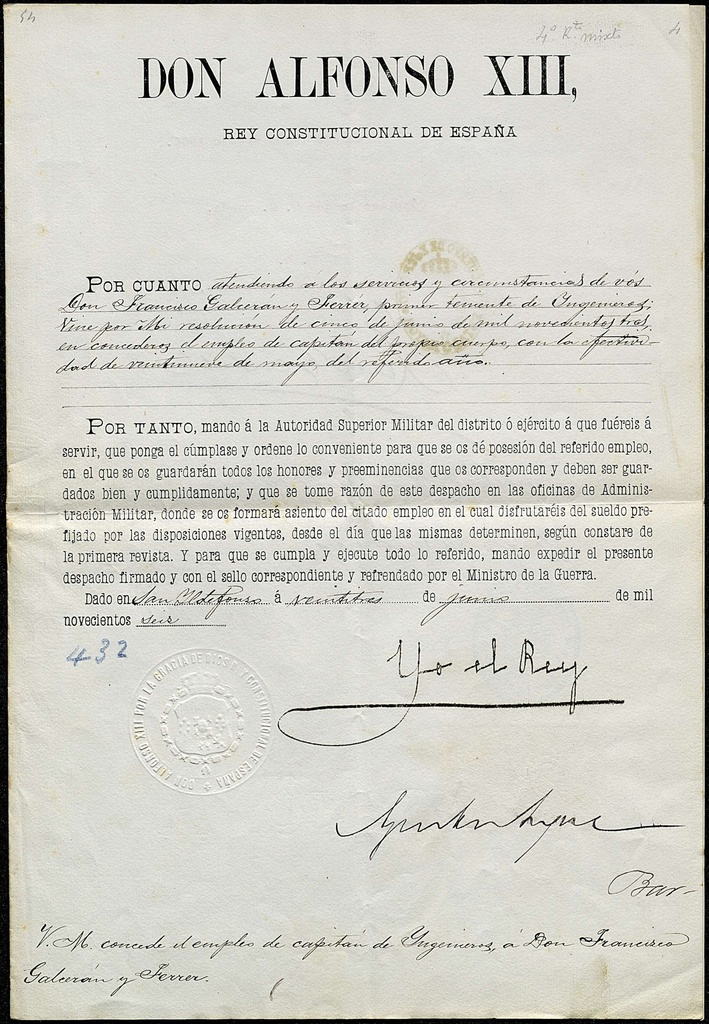 54
4º Rto mixto
4
DON ALFONSO XIII,
REY CONSTITUCIONAL DE ESPAÑA
POR CUANTO atendiendo a los servicios y circunstancias de vós
Don Francisco Galcerán y Ferrér, primer teniente de Ingenieros;
Vine por Mi resolucion de cinco de junio de mil novecientos tres,
en concederos el empleo de capitán del propio cuerpo, con la efectivi-
dad de veintinueve de mayo del referido año.
POR TANTO, mando á la Autoridad Superior Militar del distrito ó ejército á que fuéreis á
servir, que ponga el cúmplase y ordene lo conveniente para que se os dé posesión del referido empleo,
en el que se os guardarán todos los honores y preeminencias que os corresponden y deben ser guar-
dados bien y cumplidamente; y que se tome razón de este despacho en las oficinas de Adminis-
tración Militar, donde se os formará asiento del citado empleo en el cual disfrutaréis del sueldo pre-
fijado por las disposiciones vigentes, desde el día que las mismas determinen, según constare de
la primera revista. Y para que se cumpla y ejecute todo lo referido, mando expedir el presente
despacho firmado y con el sello correspondiente y refrendado por el Ministro de la Guerra.
Dado en San Ildefonso á veintitres de junio de mil
novecientos seis
432
DON ALFONSO XIII POR LA GRACIA DE DIOS Y LA CONSTITUCION REY CONSTITUCIONAL DE ESPAÑA
Yo el Rey
V. M. concede el empleo de capitán de Ingenieros, á Don Francisco
Galcerán y Ferrer.